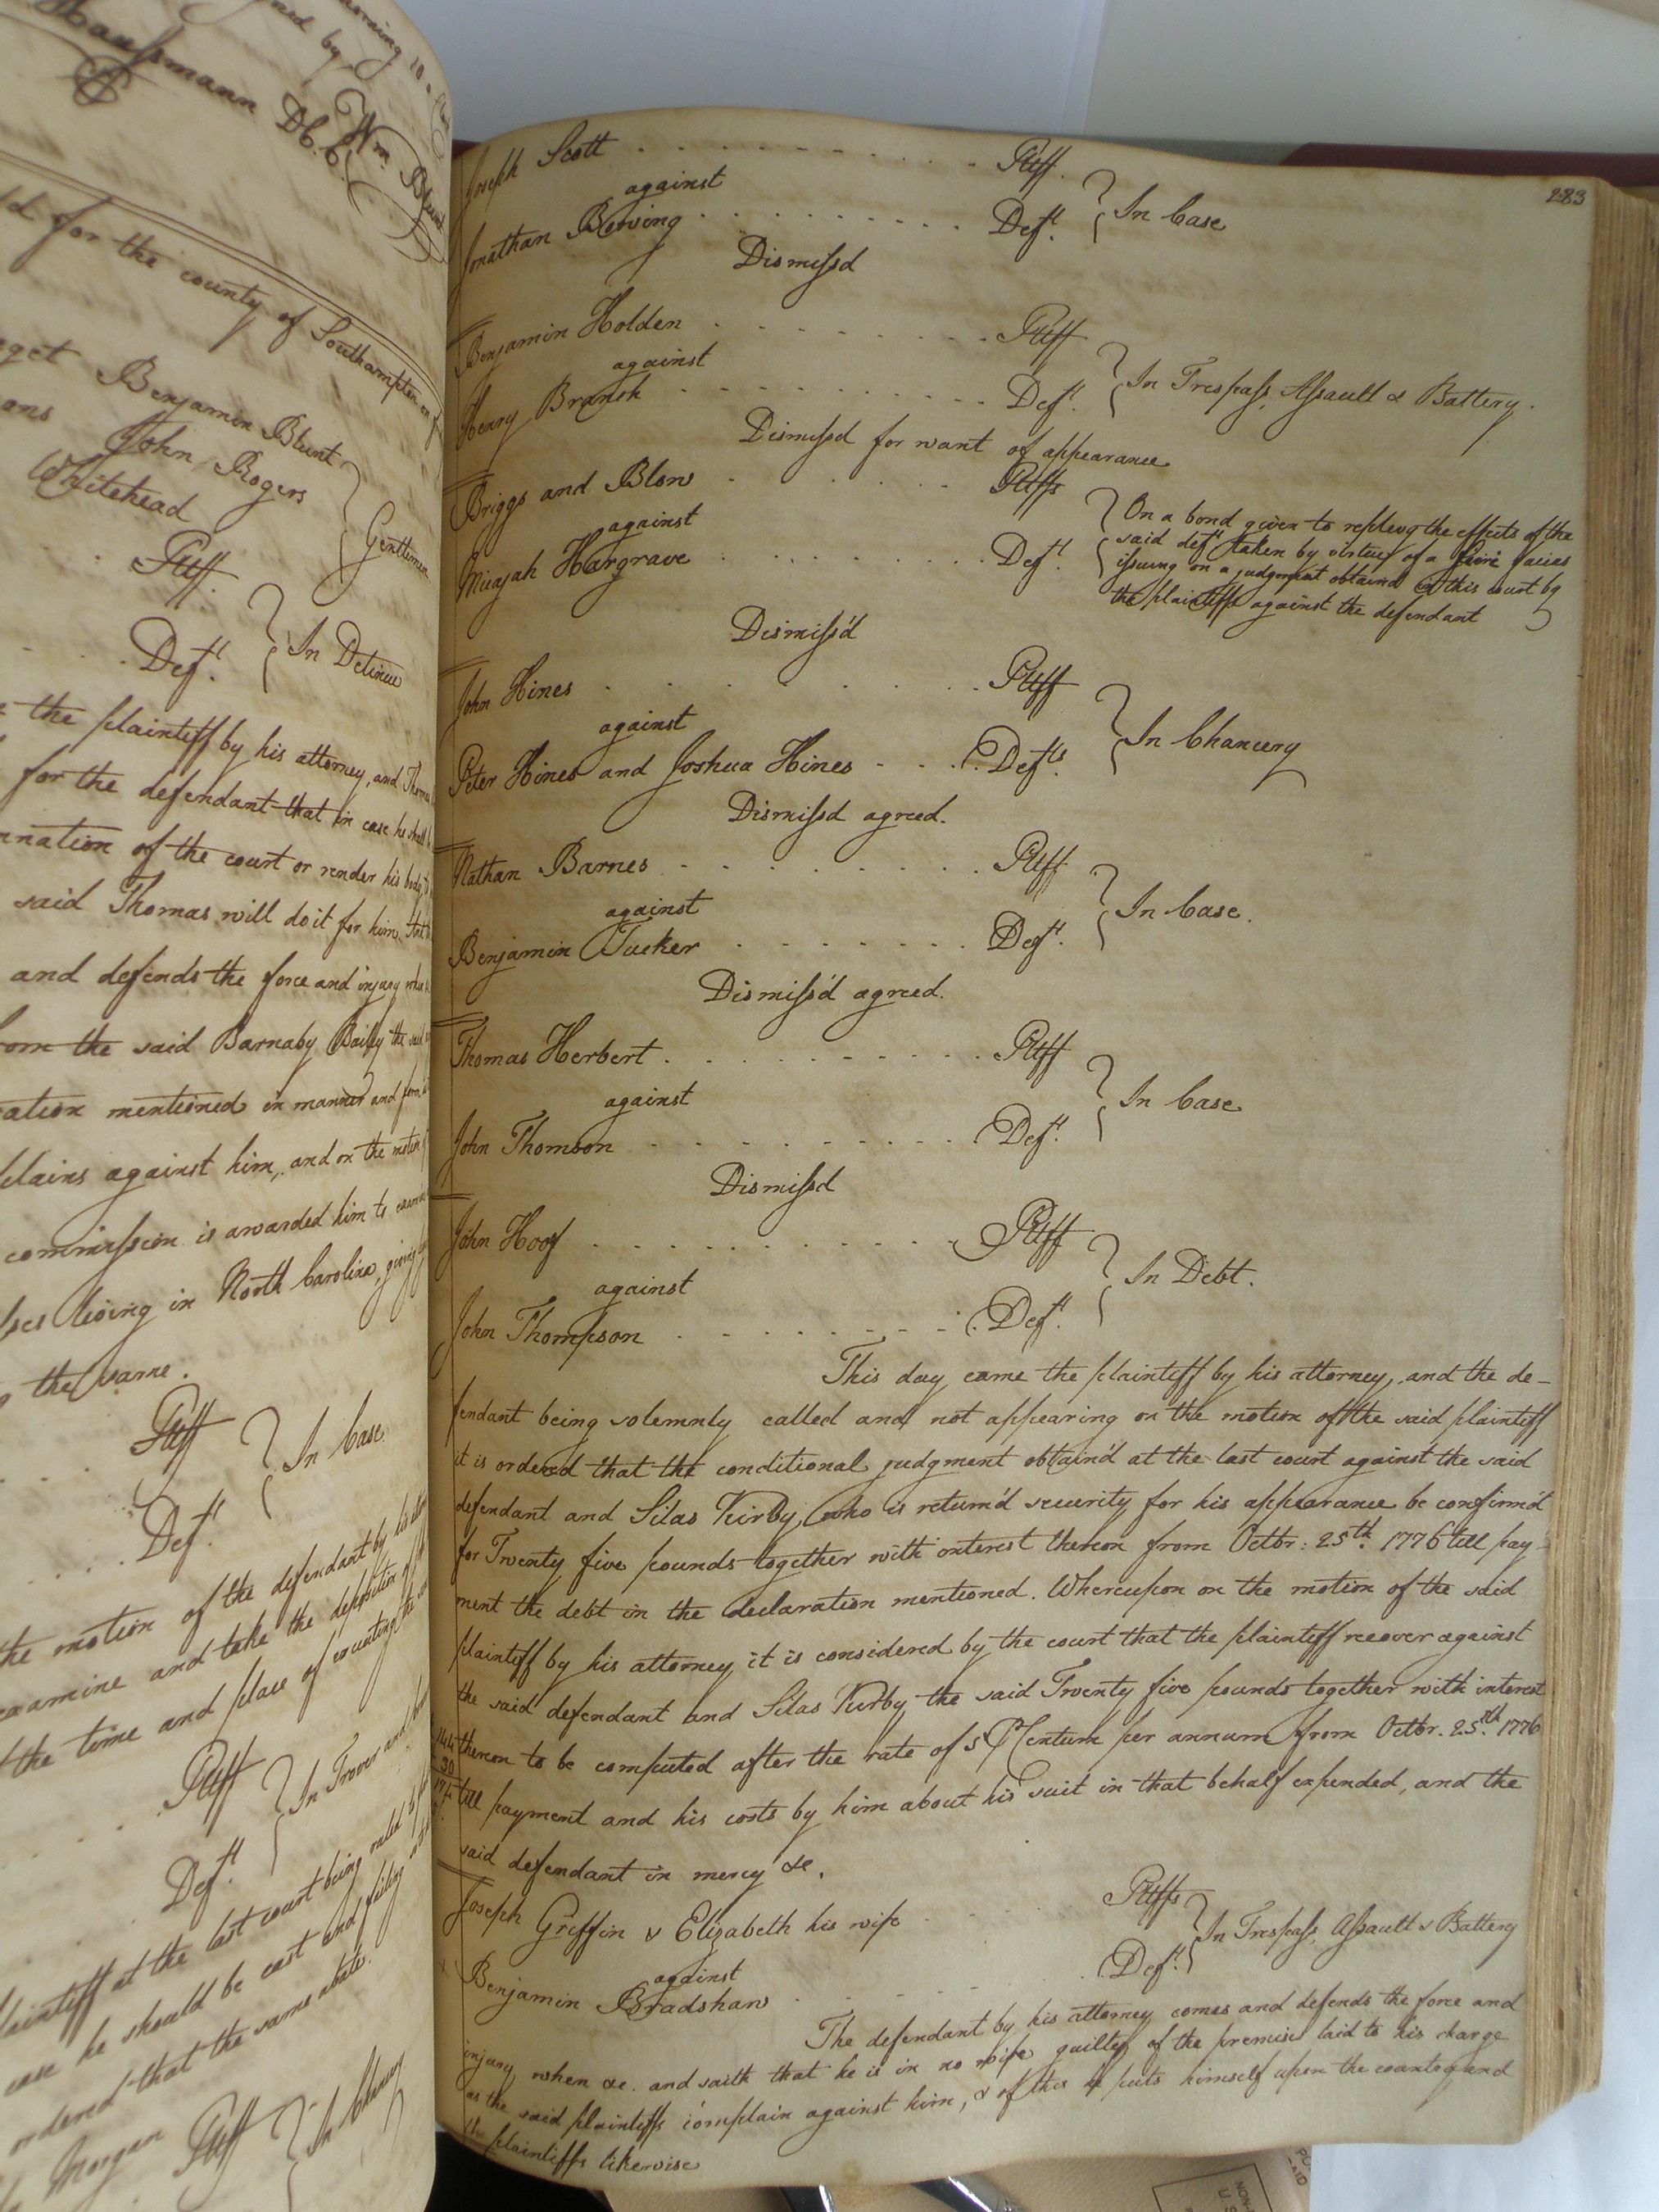 morning 10
Haussmann D.C.C.
Wm. Blunt
ld for the county of Southampton on
Benjamin Blunt
John Rogers
Whitehead
Gentlemen
Pltff.
Deft.
In Detinue
the plaintiff by his attorney, and Thomas
for the defendant that in case he shall
nation of the court or render his body
said Thomas will do it for him.
and defends the force and injury when
from the said Barnaby Bailly the said
ation mentioned in manner and form
plains against him, and on the motion
commission is awarded him to
living in North Carolina, giving
the same.
Pltff
In Case
Deft.
the motion of the defendant by his
examine and take the deposition of
the time and place of executing the
Pltff
In Trover and
Deft.
plaintiff at the last court being ruled
case he should be cast and failing
ordered that the same abate.
Morgan Pltff
In Chancery
283
Joseph Scott Pltff.
against
In Case
Jonathan Bewing Deft.
Dismissd
Benjamin Holden Pltff
against
In Trespass, Assault & Battery.
Henry Branch Deft.
Dismissd for want of appearance
Briggs and Blow Pltffs
against
Micajah Hargrave Deft.
On a bond given to replevy the effects of the
said deft. taken by virtue of a fieri facias
issuing on a judgment obtained in this court by
the plaintiffs against the defendant
Dismiss'd
John Hines Pltff
against
In Chancery
Peter Hines and Joshua Hines Defts.
Dismissd agreed.
Nathan Barnes Pltff
against
In Case.
Benjamin Tucker Deft.
Dismiss'd agreed.
Thomas Herbert Pltff
against
In Case
John Thomson Deft.
Dismissd
John Hoof Pltff
against
In Debt.
John Thompson Deft.
This day came the plaintiff by his attorney, and the de-
fendant being solemnly called and not appearing on the motion of the said plaintiff
it is ordered that the conditional judgment obtain'd at the last court against the said
defendant and Silas Kirby who is return'd security for his appearance be confirm'd
for Twenty five pounds together with interest thereon from Octbr: 25th. 1776 till pay-
ment the debt in the declaration mentioned. Whereupon on the motion of the said
plaintiff by his attorney it is considered by the court that the plaintiff recover against
the said defendant and Silas Kirby the said Twenty five pounds together with interest
144
30
174
thereon to be computed after the rate of 5 P Centum per annum from Octbr. 25th. 1776
till payment and his costs by him about his suit in that behalf expended, and the
said defendant in mercy &c.
Joseph Griffin & Elizabeth his wife Pltffs
against
In Trespass, Assault & Battery
Benjamin Bradshaw Deft.
The defendant by his attorney comes and defends the force and
injury when &c. and saith that he is in no wise guilty of the premises laid to his charge
as the said plaintiffs complain against him, & of this he puts himself upon the country and
the plaintiffs likewise